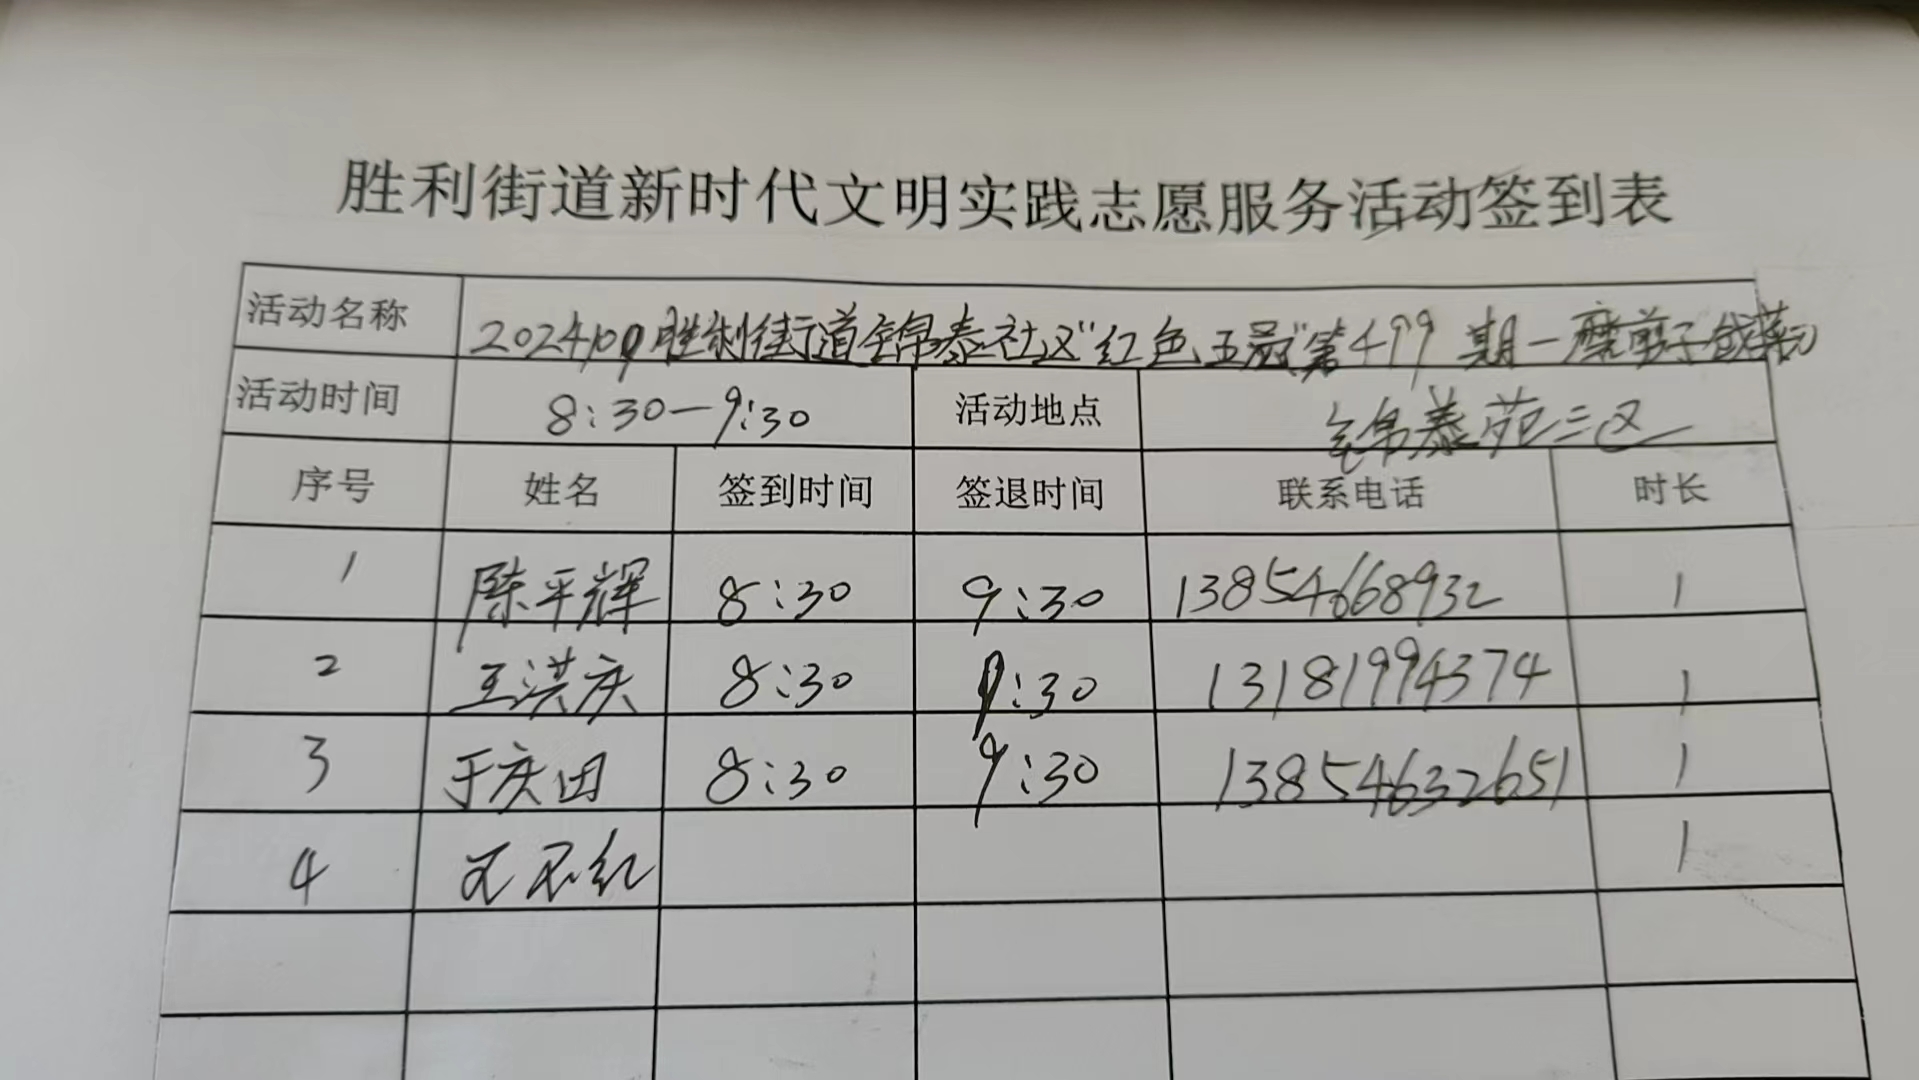 胜利街道新时代文明实践志愿服务活动签到表
活动名称 胜利街道锦泰社区"红色 第499期一磨剪子戗菜刀
活动时间 8:30—9:30 活动地点 锦泰苑三区
序号 姓名 签到时间 签退时间 联系电话 时长
1 陈平辉 8:30 9:30 13854668932 1
2 王洪庆 8:30 9:30 13181994374 1
3 于庆田 8:30 9:30 13854632651 1
4 1